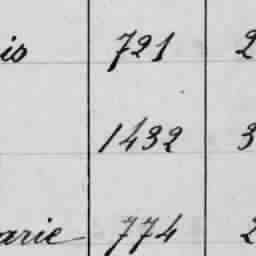 is 721 2
1432 3
arie 774 2